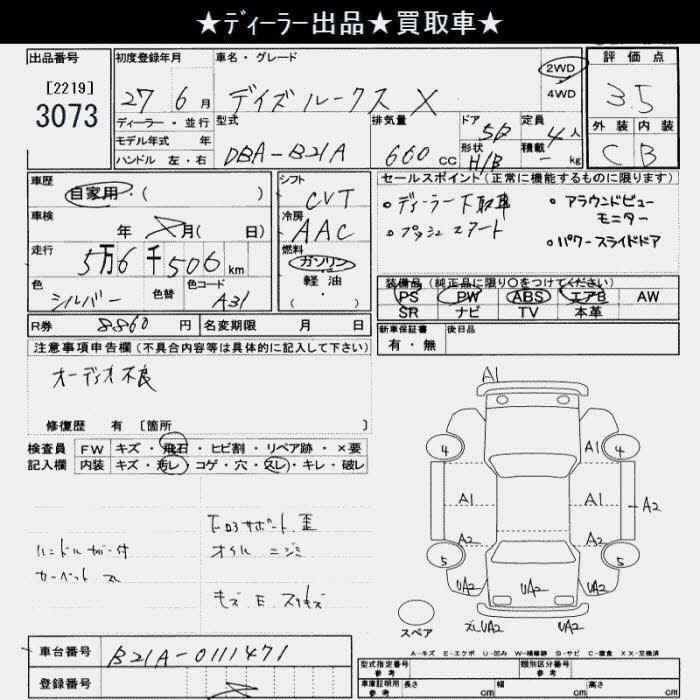 ★ディーラー出品★買取車★
出品番号
[2219]
3073
初度登録年月
27 6月
車名・グレード
デイズルークス X
2WD
4WD
評価点
3.5
外装 内装
C B
ディーラー・並行
モデル年式 年
ハンドル 左・右
型式
DBA-B21A
排気量
660 cc
ドア
5D
形状
H/B
定員
4人
積載
- kg
車歴
自家用・( )
車検
年 月( 日)
走行
5万6千506km
色
シルバー
色替
色コード
A31
シフト
CVT
冷房
AAC
燃料
ガソリン
軽油
( ・ )
セールスポイント(正常に機能するものに限ります)
・ディーラー下取車
・プッシュスタート
・アラウンドビュー
モニター
・パワースライドドア
装備品(純正品に限り○をつけてください)
PS PW ABS エアB AW
SR ナビ TV 本革
R券 8860円 名変期限 月 日
新車保証書
有・無
後日品
注意事項申告欄(不具合内容等は具体的に記入して下さい)
オーディオ不良
修復歴 有 [箇所 ]
検査員
記入欄
FW キズ・飛石・ヒビ割・リペア跡・×要
内装 キズ・汚レ・コゲ・穴・スレ・キレ・破レ
ハンドルカバー付
カーペットスレ
下回りサポート歪
オイルニジミ
キズ E スリキズ
A1
4 A1 4
A1 A1 A2
A2 A2
5 5
UA2 UA2 UA2
UA2
スペア
A-キズ E-エクボ U-凹み W-補修跡 S-サビ C-腐食 XX-交換済
車台番号 B21A-0111471
登録番号
型式指定番号
参考
類別区分番号
参考
車庫証明用
参考
長さ cm 幅 cm 高さ cm